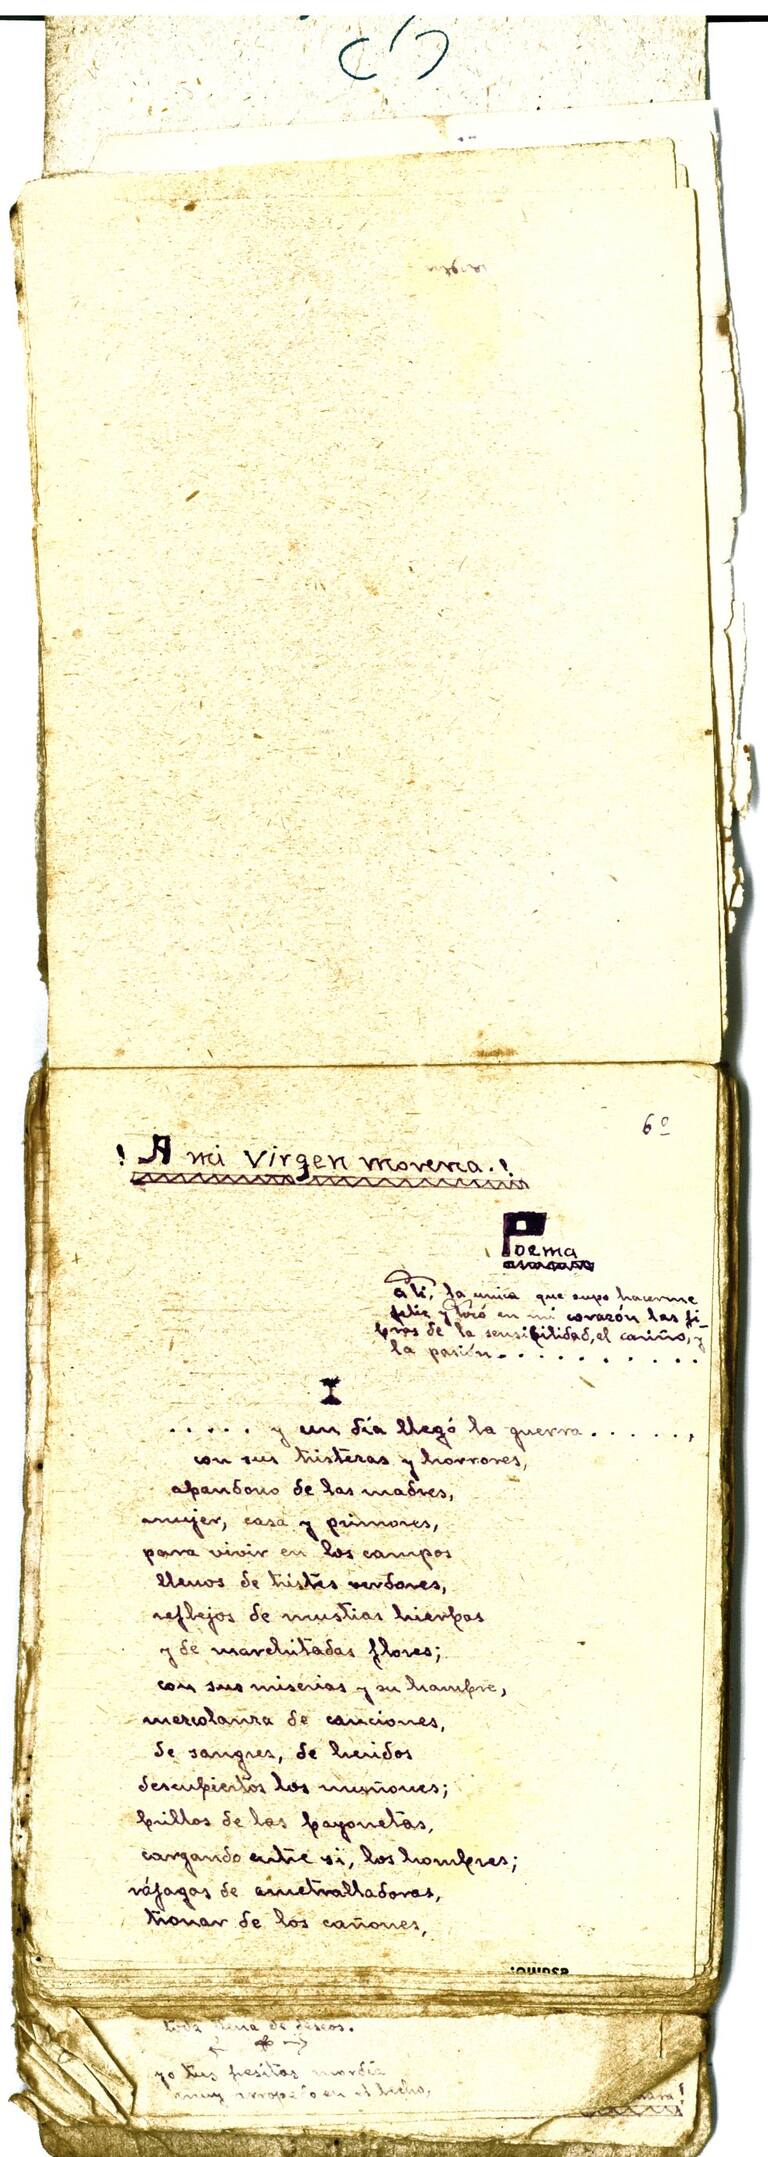 6º
! A mi Virgen morena. !
Poema
A ti, la unica que supo hacerme
feliz y tocó en mi corazón las fi-
bras de la sensibilidad, el cariño, y
la pasión. . . . . . . . . . .
I
. . . . . y un día llegó la guerra . . . . . ,
con sus tristezas y horrores,
abandono de las madres,
mujer, casa y primores,
para vivir en los campos
llenos de tristes verdores,
reflejos de mustias hierbas
y de marchitadas flores;
con sus miserias y su hambre,
mezcolanza de canciones,
de sangres, de heridos
descubiertos los muñones;
brillos de las bayonetas,
cargando entre si, los hombres;
ráfagas de ametralladoras,
tronar de los cañones,
toda llena de deseos.
yo tus
muy en el lecho,